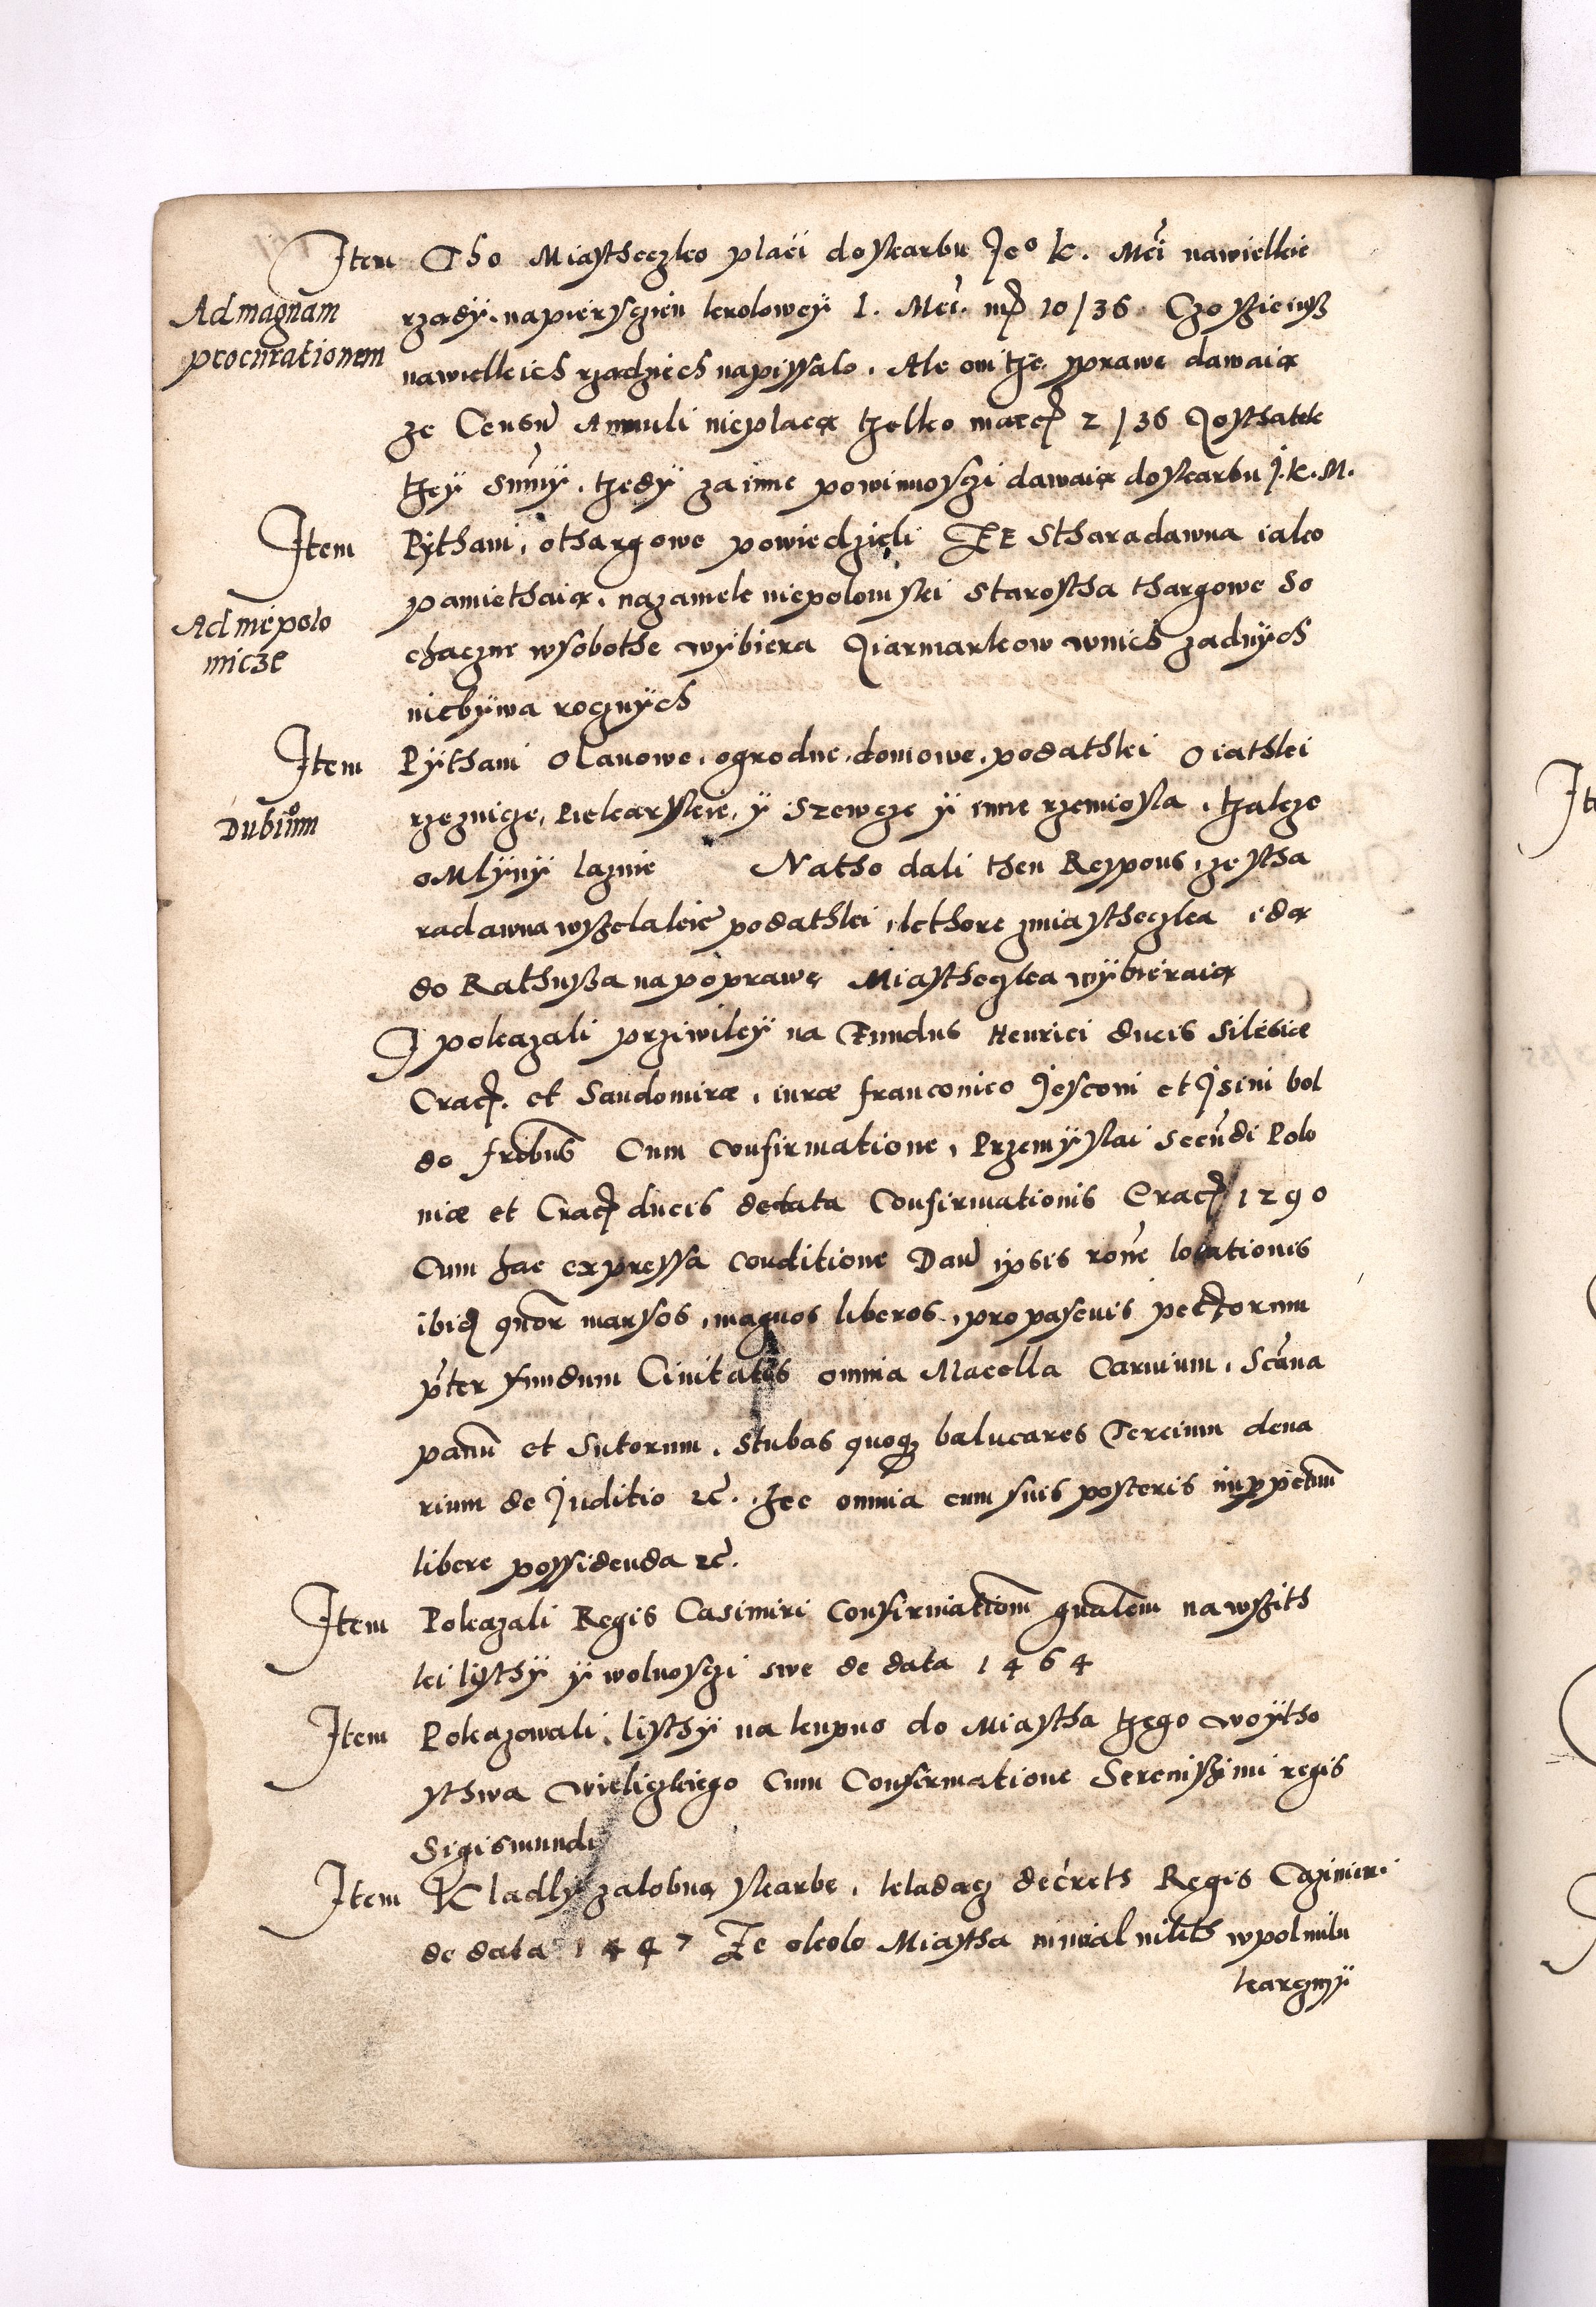 Item Tho Miastheczko placi doskarbu Jeo K. Mći nawielkie
Ad magnam procurationem
rządÿ. napierszczien krolowey J. Mći. mꝝ 10/36 Czo sie iusz
nawielkich rządziech napissalo. Ale oni tze sprawe dawaią
ze Censū Annuli nieplacą tzelko marcꝝ 2/36 Josthatek
tzeÿ sūmÿ. tzedÿ za inne powinnosczi dawaią doskarbu J.K.M.
Item Pÿthani, othargowe powiedzieli ZE Stharadawna iako
Ad niepolo
micze
pamiethaią. nazamek niepolomski Starostha thargowe So
chaczne wsobothe wÿbiera Jiarmarkow wnich zadnÿch
niebÿwa rocznÿch
Item Pÿthani Olanowe. ogrodne. domowe. podathki Oiathki
Dubium
rzeznicze, Piekarskie, ÿ Szewcze ÿ inne rzemiosla. tzakze
oMlÿnÿ laznie Natho dali then Respons, ze stha
radawna wszelakie podathki, kthore zmiastheczka idą
do Rathusza na poprawe Miastheczka wÿbieraią
J pokazali prziwileÿ na Fundus Henrici ducis Silesiæ
Cracꝝ. et Sandomiræ, iuræ franconico Jesconi et Jsini bol
do frībus Cum confirmatione, Przemÿslai Secūdi Polo
niæ et Cracꝝ ducis de data Confirmationis Cracꝝ 1290
Cum hac expressa conditione Dam̄ ipsis rōne locationis
ibiđ qūor mansos, magnos liberos, pro pascuis pecorum
p̄ter fundum Ciuitatis omnia Macella Carnium, Scāna
panū et Sutorum, Stubas quoqꝫ balneares Tercium dena
rium de Juditio ꝛc̄. hec omnia cum suis posteris inppetuū
libere possidenda ꝛc̄.
Item Pokazali Regis Casimiri Confirmationē gn̄alem na wszith
ki listhÿ ÿ wolnosczi swe de data 1464
Item Pokazowali, listhÿ na kupno do Miastha tzego woÿtho
sthwa Wieliczkiego Cum Confirmatione Serenissimi regis
Sigismundi
Item Kladlÿ zalobną skarbe, kladącz decreth Regis Cazimiri
de data 1447 Ze okolo Miastha nimial nikth wpolmilu
karczmÿ